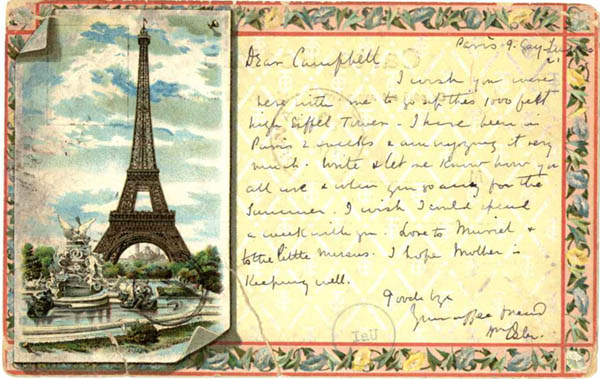 Paris 9.
Dear Campbell
I wish you were
here with me to go up this 1000 feet
high Eiffel Tower. I have been in
Paris 2 weeks & am enjoying it very
much. Write & let me know how you
all are & when you go away for the
Summer. I wish I could spend
a week with you. Love to Muriel &
to the little missus. I hope Mother is
keeping well.
Goodbye
Your affec friend
Wm Osler